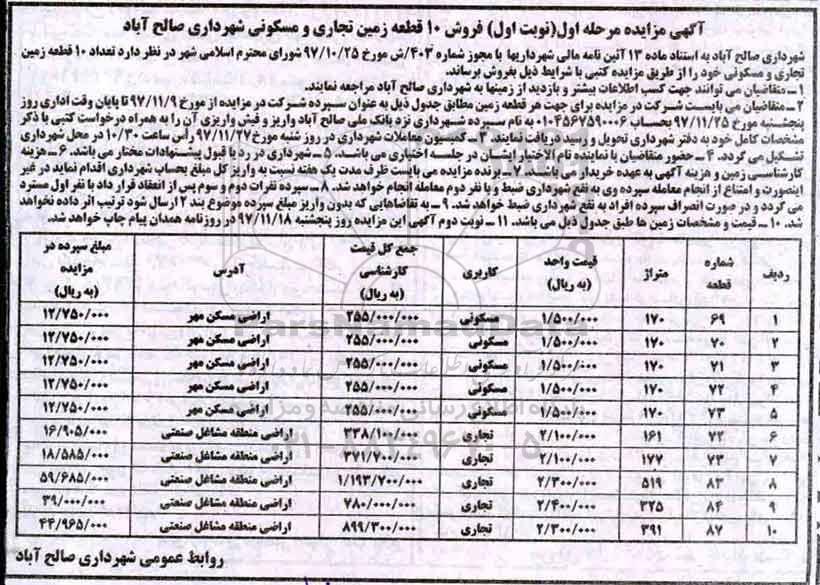 آگهی مزایده مرحله اول(نوبت اول) فروش ۱۰ قطعه زمین تجاری و مسکونی شهرداری صالح آباد
شهرداری صالح آباد به استناد ماده ۱۳ آئین نامه مالی شهرداریها با مجوز شماره ۴۰۳/ش مورخ ۹۷/۱۰/۲۵ شورای محترم اسلامی شهر در نظر دارد تعداد ۱۰ قطعه زمین
تجاری و مسکونی خود را از طریق مزایده کتبی با شرایط ذیل بفروش برساند.
۱ـ متقاضیان می توانند جهت کسب اطلاعات بیشتر و بازدید از زمینها به شهرداری صالح آباد مراجعه نمایند.
۲ـ متقاضیان می بایست شرکت در مزایده برای جهت هر قطعه زمین مطابق جدول ذیل به عنوان سپرده شرکت در مزایده از مورخ ۹۷/۱۱/۹ تا پایان وقت اداری روز
پنجشنبه مورخ ۹۷/۱۱/۲۵ بحساب ۰۱۰۴۵۶۷۵۹۰۰۰۶ به نام سپرده شهرداری نزد بانک ملی صالح آباد واریز و فیش واریزی آن را به همراه درخواست کتبی با ذکر
مشخصات کامل خود به دفتر شهرداری تحویل و رسید دریافت نمایند. ۳ـ کمیسیون معاملات شهرداری در روز شنبه مورخ ۹۷/۱۱/۲۷ رأس ساعت ۱۰/۳۰ در محل شهرداری
تشکیل می گردد. ۴ـ حضور متقاضیان یا نماینده تام الاختیار ایشان در جلسه اختیاری می باشد. ۵ـ شهرداری در رد یا قبول پیشنهادات مختار می باشد. ۶ـ هزینه
کارشناسی زمین و هزینه آگهی به عهده خریدار می باشد. ۷ـ برنده مزایده می بایست ظرف مدت یک هفته نسبت به واریز کل مبلغ بحساب شهرداری اقدام نماید در غیر
اینصورت و امتناع از انجام معامله سپرده وی به نفع شهرداری ضبط و با نفر دوم معامله انجام خواهد شد. ۸ـ سپرده نفرات دوم و سوم پس از انعقاد قرار داد با نفر اول مسترد
می گردد و در صورت انصراف سپرده افراد به نفع شهرداری ضبط خواهد شد. ۹ـ به تقاضاهایی که بدون واریز مبلغ سپرده موضوع بند ۲ ارسال شود ترتیب اثر داده نخواهد
شد. ۱۰ـ قیمت و مشخصات زمین ها طبق جدول ذیل می باشد. ۱۱ـ نوبت دوم آگهی این مزایده روز پنجشنبه ۹۷/۱۱/۱۸ در روزنامه همدان پیام چاپ خواهد شد.
ردیف شماره قطعه متراژ قیمت واحد (به ریال) کاربری جمع کل قیمت کارشناسی (به ریال) آدرس مبلغ سپرده در مزایده (به ریال)
۱ ۶۹ ۱۷۰ ۱/۵۰۰/۰۰۰ مسکونی ۲۵۵/۰۰۰/۰۰۰ اراضی مسکن مهر ۱۲/۷۵۰/۰۰۰
۲ ۷۰ ۱۷۰ ۱/۵۰۰/۰۰۰ مسکونی ۲۵۵/۰۰۰/۰۰۰ اراضی مسکن مهر ۱۲/۷۵۰/۰۰۰
۳ ۷۱ ۱۷۰ ۱/۵۰۰/۰۰۰ مسکونی ۲۵۵/۰۰۰/۰۰۰ اراضی مسکن مهر ۱۲/۷۵۰/۰۰۰
۴ ۷۲ ۱۷۰ ۱/۵۰۰/۰۰۰ مسکونی ۲۵۵/۰۰۰/۰۰۰ اراضی مسکن مهر ۱۲/۷۵۰/۰۰۰
۵ ۷۳ ۱۷۰ ۱/۵۰۰/۰۰۰ مسکونی ۲۵۵/۰۰۰/۰۰۰ اراضی مسکن مهر ۱۲/۷۵۰/۰۰۰
۶ ۷۲ ۱۶۱ ۲/۱۰۰/۰۰۰ تجاری ۳۳۸/۱۰۰/۰۰۰ اراضی منطقه مشاغل صنعتی ۱۶/۹۰۵/۰۰۰
۷ ۷۳ ۱۷۷ ۲/۱۰۰/۰۰۰ تجاری ۳۷۱/۷۰۰/۰۰۰ اراضی منطقه مشاغل صنعتی ۱۸/۵۸۵/۰۰۰
۸ ۸۳ ۵۱۹ ۲/۳۰۰/۰۰۰ تجاری ۱/۱۹۳/۷۰۰/۰۰۰ اراضی منطقه مشاغل صنعتی ۵۹/۶۸۵/۰۰۰
۹ ۸۴ ۳۲۵ ۲/۴۰۰/۰۰۰ تجاری ۷۸۰/۰۰۰/۰۰۰ اراضی منطقه مشاغل صنعتی ۳۹/۰۰۰/۰۰۰
۱۰ ۸۷ ۳۹۱ ۲/۳۰۰/۰۰۰ تجاری ۸۹۹/۳۰۰/۰۰۰ اراضی منطقه مشاغل صنعتی ۴۴/۹۶۵/۰۰۰
روابط عمومی شهرداری صالح آباد
ParsNamadData